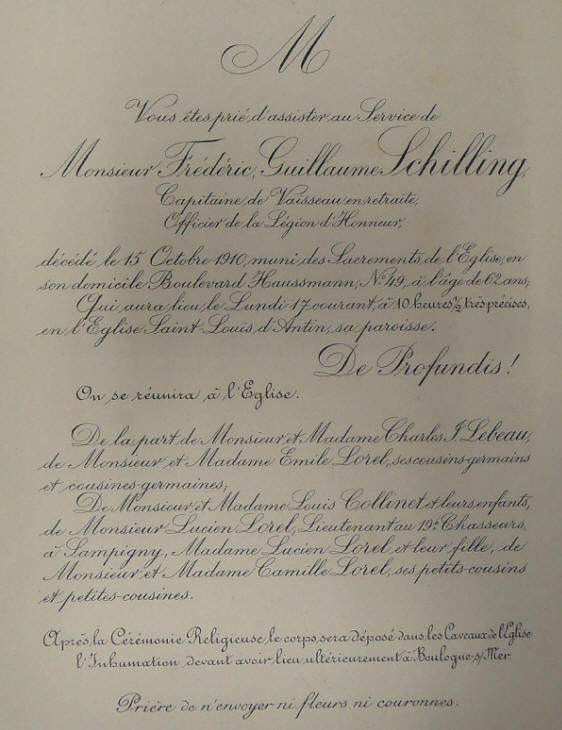 M
Vous êtes prié d'assister au Service de
Monsieur Frédéric, Guillaume Schilling,
Capitaine de Vaisseau en retraite,
Officier de la Légion d'Honneur,
décédé le 15 Octobre 1910, muni des Sacrements de l'Eglise, en
son domicile Boulevard Haussmann, N° 49, à l'âge de 62 ans;
Qui aura lieu le Lundi 17 courant, à 10 heures ½ très précises,
en l'Eglise Saint Louis d'Antin, sa paroisse.
De Profundis!
On se réunira à l'Eglise.
De la part de Monsieur et Madame Charles J. Lebeau,
de Monsieur et Madame Emile Lorel, ses cousins-germains
et cousines-germaines;
De Monsieur et Madame Louis Collinet et leurs enfants,
de Monsieur Lucien Lorel, Lieutenant au 19e Chasseurs,
à Sampigny, Madame Lucien Lorel et leur fille, de
Monsieur et Madame Camille Lorel, ses petits-cousins
et petites-cousines.
Après la Cérémonie Religieuse le corps sera déposé dans les Caveaux de l'Eglise
l'Inhumation devant avoir lieu ultérieurement à Boulogne s/Mer.
Prière de n'envoyer ni fleurs ni couronnes.